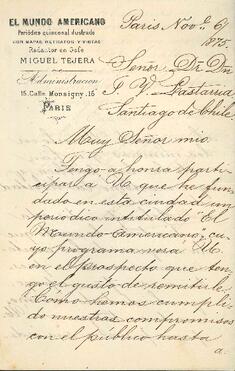 EL MUNDO AMERICANO
Periódico quincenal ilustrado
CON MAPAS, RETRATOS Y VISTAS
Redactor en Gefe
MIGUEL TEJERA
Administracion
15, Calle Monsigny, 15
PARIS
Paris Nov.e 6/
1875
Señor Dr Dn
J. V. Lastarria
Santiago de Chile
Muy Señor mio
Tengo a honra parti-
cipar a U que he fun-
dado en esta ciudad un
periodico intitulado "El
Mundo Americano," cu-
yo programa verá U
en el prospecto que ten-
go el gusto de remitirle.
Como hemos cumpli-
do nuestros compromisos
con el público hasta
a